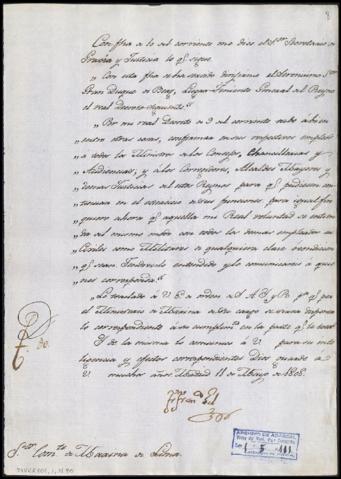 Con fha 10 del corriente me dice el Sor Secretario de
Gracia y Justicia lo qe sigue.
„Con esta fha se ha servido dirigirme el Serenisimo Sor
Gran Duque de Berg, Lugar Teniente General del Reyno
el real Decreto siguiente.
„Por mi real Decreto de 3 del corriente tube á bien
entre otras cosas, confirmar en sus respectivos empleos
á todos los Ministros de los Consejos, Chancillerias y
Audiencias, y á los Corregidores, Alcaldes Mayores y
demas Justicias de este Reyno para qe pudiesen con-
tinuar en el exercicio de sus funciones
quiero ahora qe aquella mi Real voluntad se entien-
da del mismo modo con todos los demas empleados asi
Civiles como Militares de qualquiera clase ó condicion
qe sean. Tendreislo entendido y lo comunicareis á quie-
nes corresponda.
„Lo traslado á V.E. de orden de S.A.I. y R. pa qe por el
Ministerio de Marina de su cargo se sirva disponer
lo correspondiente á su cumplimto en la parte qe le toca.
Y de la misma lo comunico á V para su inte-
ligencia y efectos correspondientes Dios guarde á
V muchos años Madrid 11 de Mayo de 1808.
Franco Gil
Sor Comte de Marina de